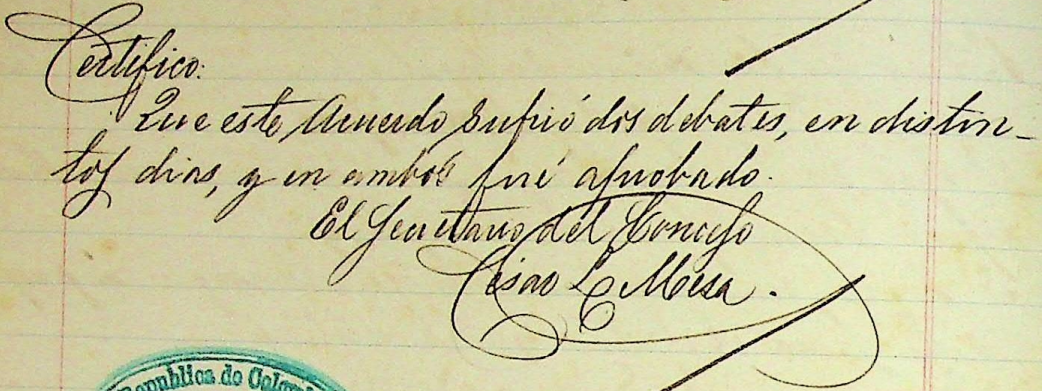 Certifico:
Que este Acuerdo sufrió dos debates, en distin-
tos dias, y en ambos fué aprobado.
El Secretario del Concejo
César L Mesa.
Republica de Colom